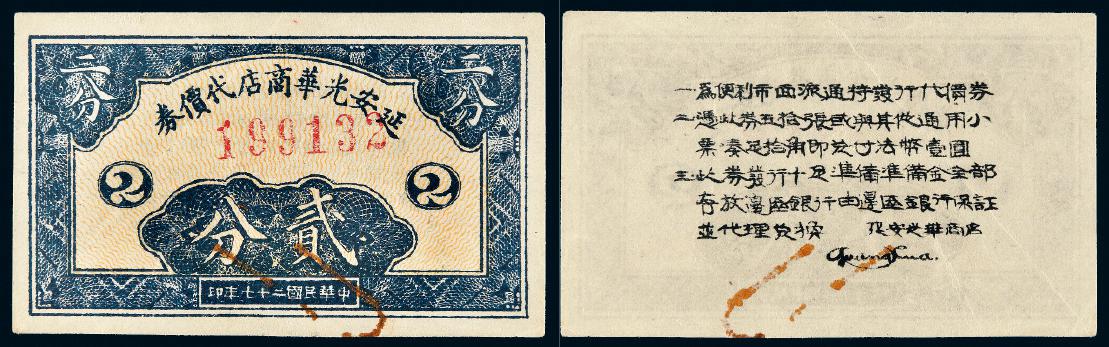 二分
二分
延安光華商店代價券
199132
2
2
貳分
中華民國二十七年印
一為便利市面流通特發行代價券
二憑此券五拾張或與其他通用小
票湊足拾角即兌付法幣壹圓
三此券發行十足準備準備金全部
存放邊區銀行由邊區銀行保証
並代理兌換 延安光華商店